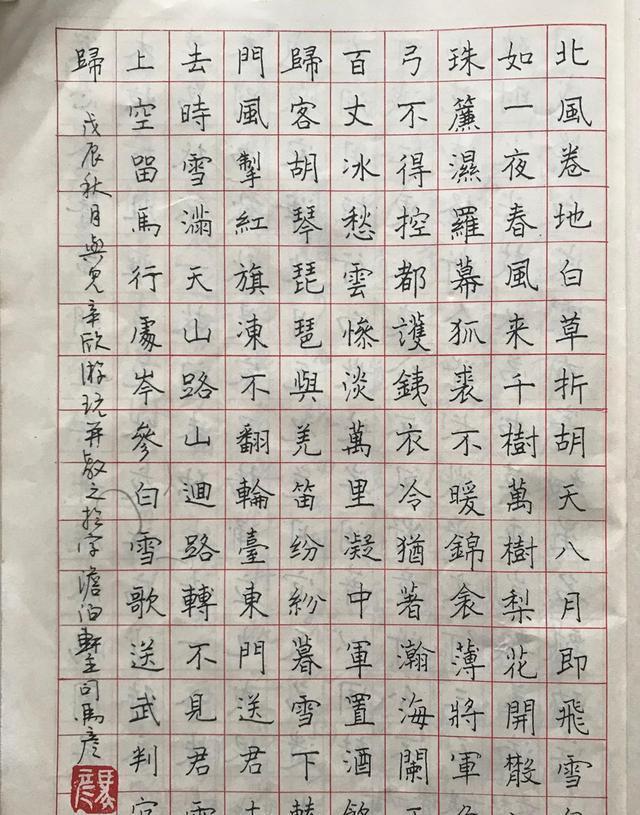 北風卷地白草折胡天八月即飛雪
如一夜春風来千樹萬樹梨花開散
珠簾濕羅幕狐裘不暖錦衾薄將軍
弓不得控都護銕衣冷猶著瀚海闌
百丈冰愁雲慘淡萬里凝中軍置酒飲
歸客胡琴琵琶與羌笛纷紛暮雪下轅
門風掣紅旗凍不翻輪臺東門送君
去時雪滿天山路山迴路轉不見君雪
上空留馬行處岑參白雪歌送武判官
歸
戊辰秋月與兒辛欣游玩并教之於字 澹泊軒主司馬彦